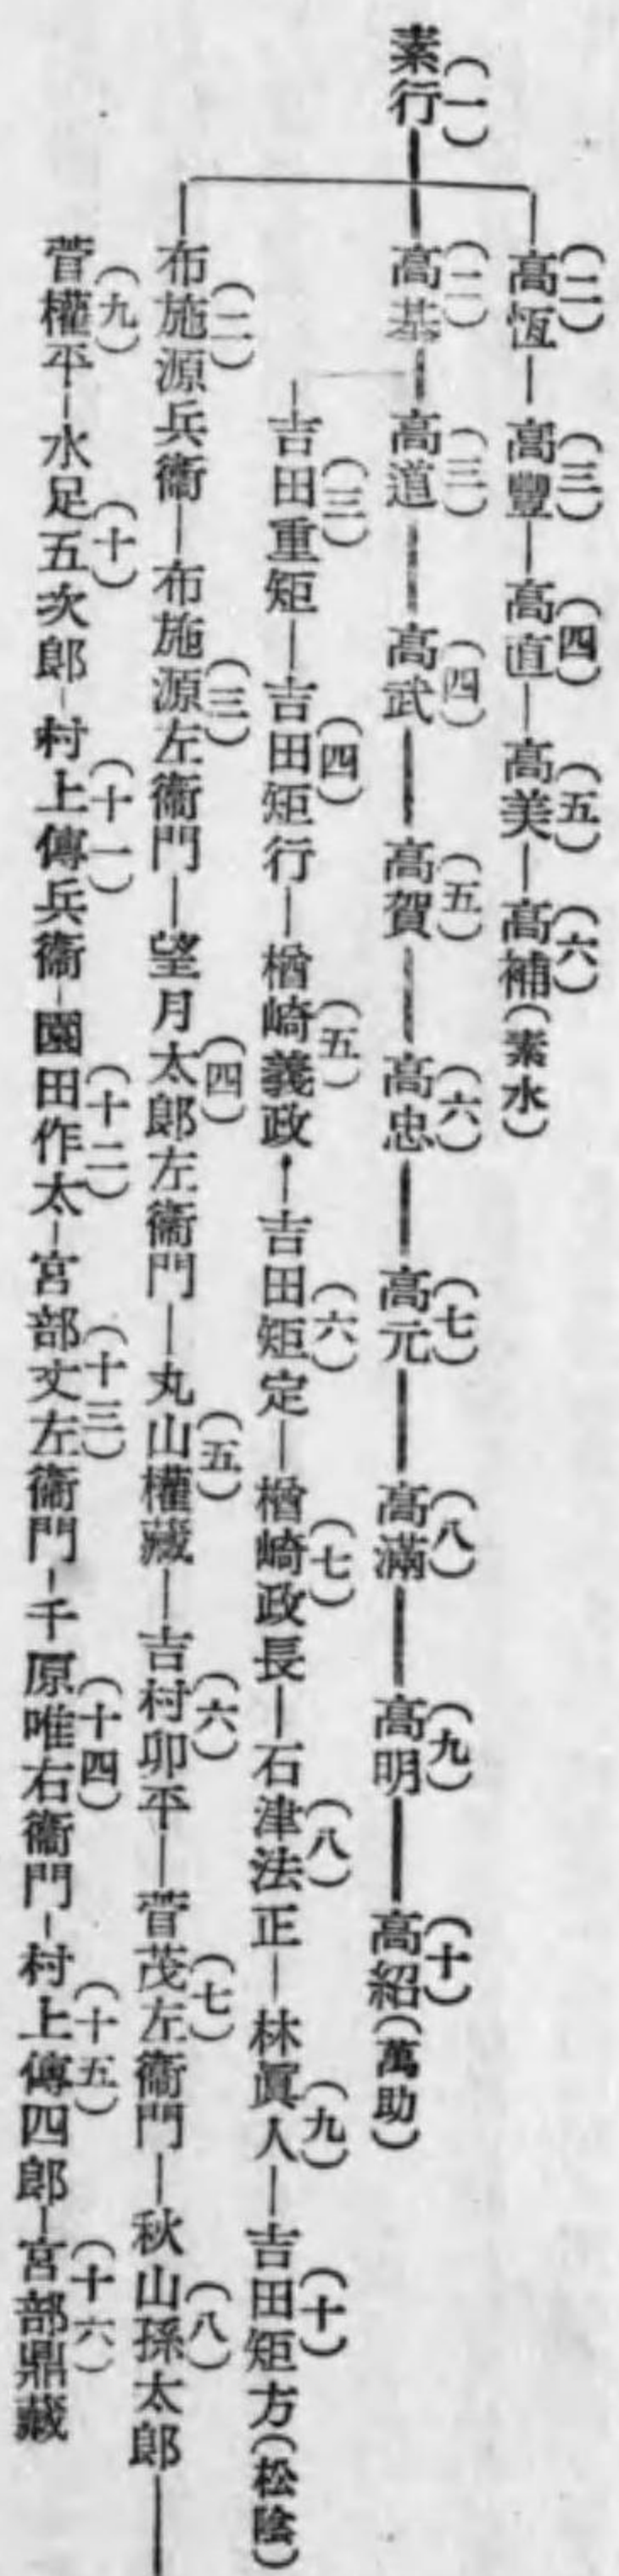 (一)素行
(二)高恆―(三)高豐―(四)高直―(五)高美―(六)高補(素水)
(二)高基―(三)高道―(四)高武―(五)高賀―(六)高忠―(七)高元―(八)高滿―(九)高明―(十)高紹(萬助)
(三)吉田重矩―(四)吉田矩行―(五)楢崎義政―(六)吉田矩定―(七)楢崎政長―(八)石津法正―(九)林眞人―(十)吉田矩方(松陰)
(二)布施源兵衞―(三)布施源左衞門―(四)望月太郎左衞門―(五)丸山權藏―(六)吉村卯平―(七)菅茂左衞門―(八)秋山孫太郎―
(九)菅權平―(十)水足五次郎―(十一)村上傳兵衞―(十二)園田作太―(十三)宮部丈左衞門―(十四)千原唯右衞門―(十五)村上傳四郎―(十六)宮部鼎藏